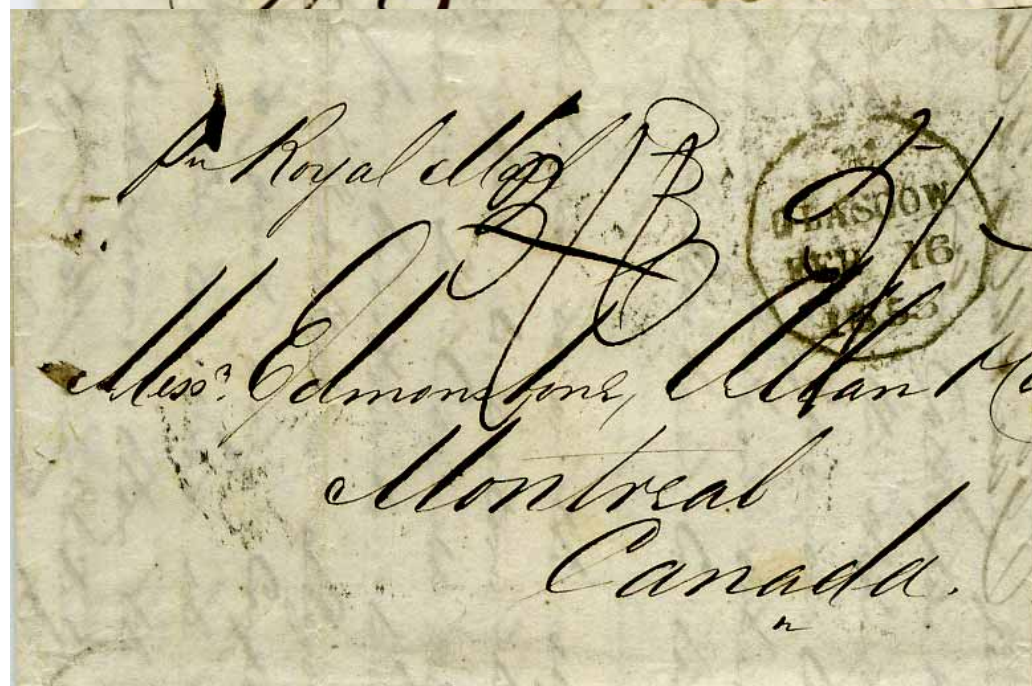 Per Royal Mail
GLASGOW
FEB 16
1853
Messrs. Edmonstone, Allan & Co
Montreal
Canada.